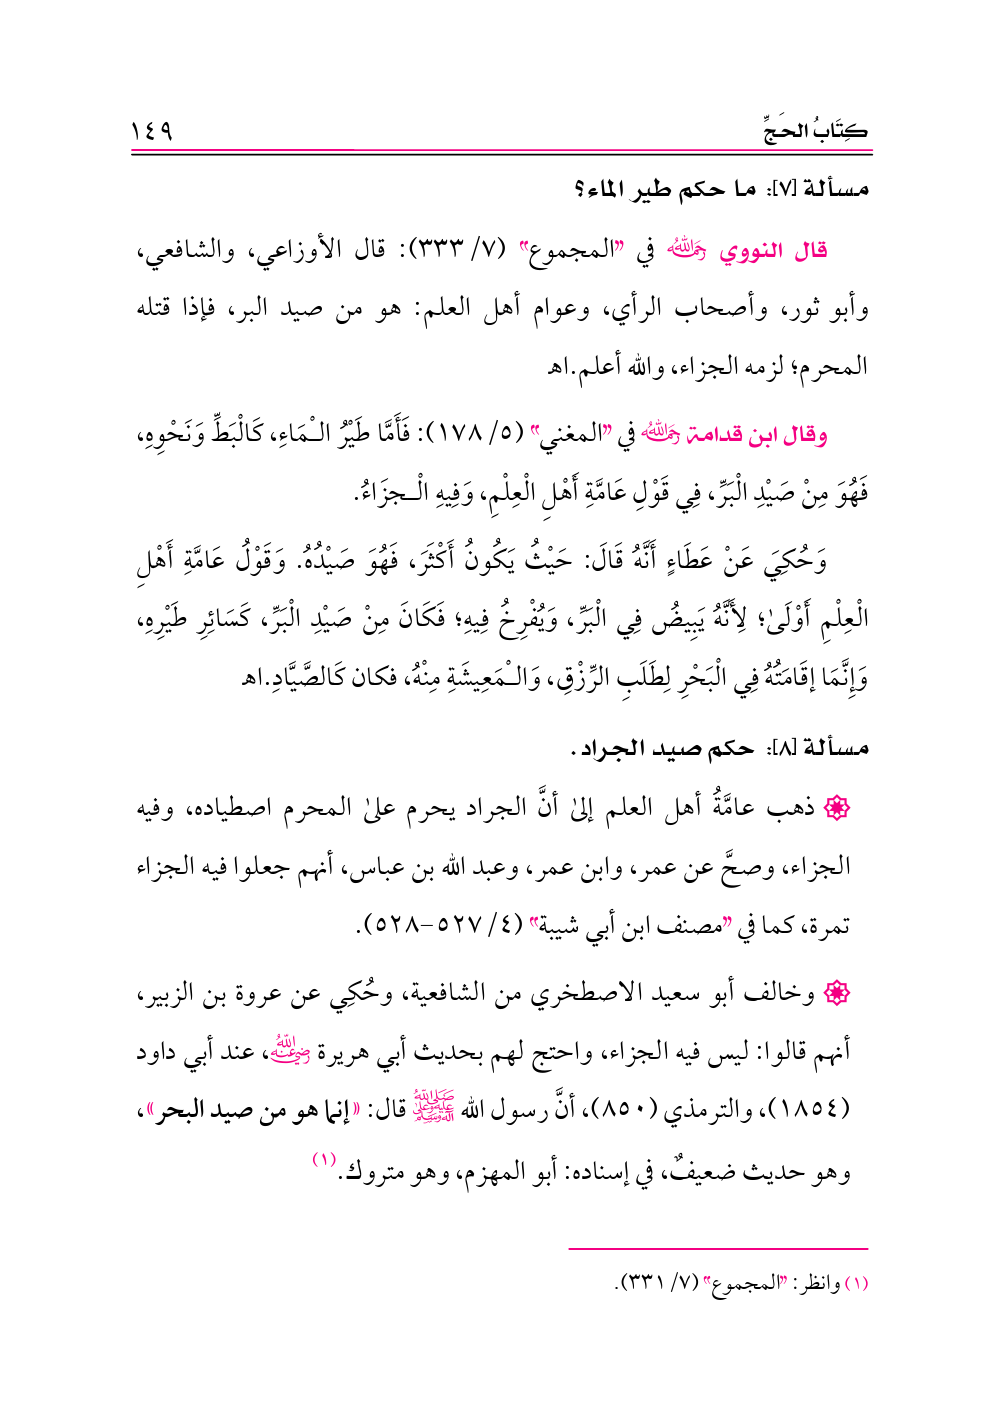 كِتَابُ الحَجِّ ١٤٩
مسألة [٧]: ما حكم طير الماء؟
قال النووي رَحِمَهُ اللهُ في "المجموع" (٧/ ٣٣٣): قال الأوزاعي، والشافعي،
وأبو ثور، وأصحاب الرأي، وعوام أهل العلم: هو من صيد البر، فإذا قتله
المحرم؛ لزمه الجزاء، والله أعلم.اهـ
وقال ابن قدامة رَحِمَهُ اللهُ في "المغني" (٥/ ١٧٨): فَأَمَّا طَيْرُ الْمَاءِ، كَالْبَطِّ وَنَحْوِهِ،
فَهُوَ مِنْ صَيْدِ الْبَرِّ، فِي قَوْلِ عَامَّةِ أَهْلِ الْعِلْمِ، وَفِيهِ الْـجزَاءُ.
وَحُكِيَ عَنْ عَطَاءٍ أَنَّهُ قَالَ: حَيْثُ يَكُونُ أَكْثَرَ، فَهُوَ صَيْدُهُ. وَقَوْلُ عَامَّةِ أَهْلِ
الْعِلْمِ أَوْلَىٰ؛ لِأَنَّهُ يَبِيضُ فِي الْبَرِّ، وَيُفْرِخُ فِيهِ؛ فَكَانَ مِنْ صَيْدِ الْبَرِّ، كَسَائِرِ طَيْرِهِ،
وَإِنَّمَا إقَامَتُهُ فِي الْبَحْرِ لِطَلَبِ الرِّزْقِ، وَالْـمَعِيشَةِ مِنْهُ، فكان كَالصَّيَّادِ.اهـ
مسألة [٨]: حكم صيد الجراد.
ذهب عامَّةُ أهل العلم إلىٰ أنَّ الجراد يحرم علىٰ المحرم اصطياده، وفيه
الجزاء، وصحَّ عن عمر، وابن عمر، وعبد الله بن عباس، أنهم جعلوا فيه الجزاء
تمرة، كما في "مصنف ابن أبي شيبة" (٤/ ٥٢٧-٥٢٨).
وخالف أبو سعيد الاصطخري من الشافعية، وحُكِي عن عروة بن الزبير،
أنهم قالوا: ليس فيه الجزاء، واحتج لهم بحديث أبي هريرة رَضِيَ اللهُ عَنْهُ، عند أبي داود
(١٨٥٤)، والترمذي (٨٥٠)، أنَّ رسول الله ﷺ قال: «إنما هو من صيد البحر»،
وهو حديث ضعيفٌ، في إسناده: أبو المهزم، وهو متروك.(١)
(١) وانظر: "المجموع" (٧/ ٣٣١).